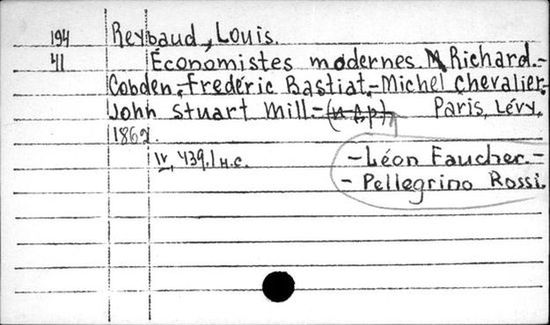 194 Reybaud, Louis.
41 Économistes modernes Richard.-
Cobden,-Fredéric Bastiat,-Michel Chevalier,-
John Stuart Mill.- Paris, Lévy,
1862.
IV, 439, 1 н.с. -Léon Faucher.-
- Pellegrino Rossi.